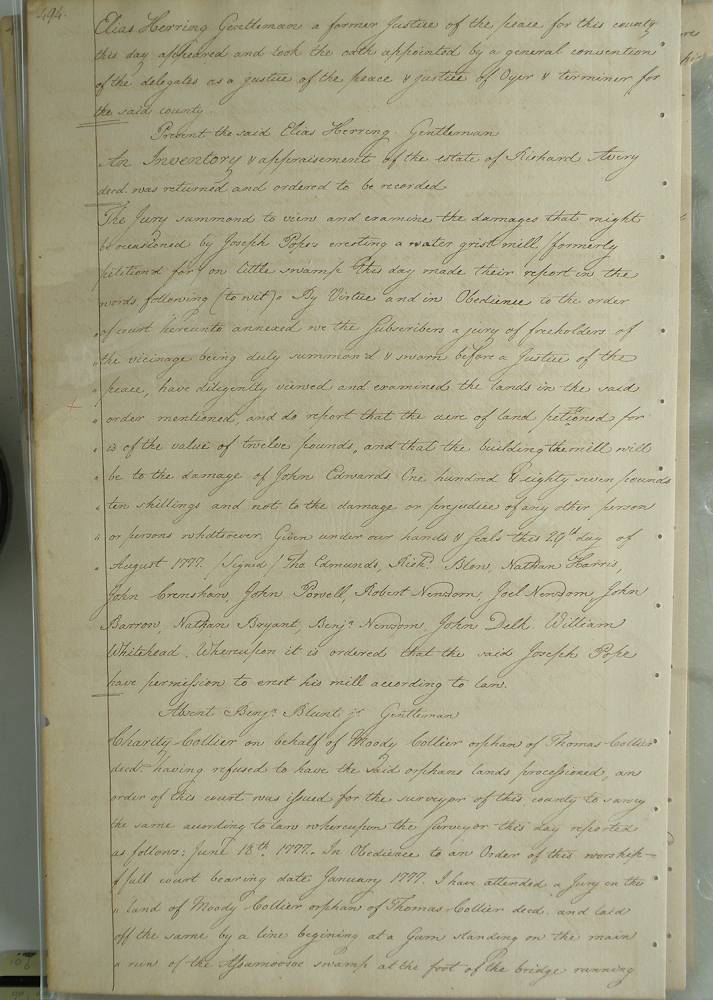 494.
Elias Herring Gentleman a former Justice of the peace for this county
this day appeared and took the oath appointed by a general convention
of the delegates as a justice of the peace & justice of Oyer & terminer for
the said county.
Present the said Elias Herring Gentleman
An Inventory & appraisement of the estate of Richard Avery
deced. was returned and ordered to be recorded
The Jury summond to view and examine the damages that might
be occasioned by Joseph Popes erecting a water grist mill, formerly
petitiond for on little swamp this day made their report in the
words following (to wit) By Virtue and in Obedience to the order
of court hereunto annexed we the Subscribers a jury of freeholders of
the vicinage being duly summon'd & sworn before a Justice of the
peace, have diligently viewed and examined the lands in the said
order mentioned, and do report that the acre of land petitioned for
is of the value of twelve pounds, and that the building the mill will
be to the damage of John Edwards One hundred & eighty seven pounds
ten shillings and not to the damage or prejudice of any other person
or persons whatsoever. Given under our hands & seals this 29th day of
August 1777. /Signed/ Tho. Edmunds, Richd. Blow, Nathan Harris,
John Crenshaw, John Powell, Robert Newsom, Joel Newsom, John
Barrow, Nathan Bryant, Benja. Newsom, John Delk William
Whitehead. Whereupon it is ordered that the said Joseph Pope
have permission to erect his mill according to law.
Absent Benja. Blunt jr. Gentleman
Charity Collier on behalf of Moody Collier orphan of Thomas Collier
deced. having refused to have the said orphans lands processioned, an
order of this court was issued for the surveyor of this county to survey
the same according to law whereupon the Surveyor this day reported
as follows: June 18th. 1777. In Obedience to an Order of this worship-
full court bearing date January 1777. I have attended a Jury on the
land of Moody Collier orphan of Thomas Collier deced. and laid
off the same by a line begining at a Gum standing on the main
run of the Assamoosoc swamp at the foot of the bridge running